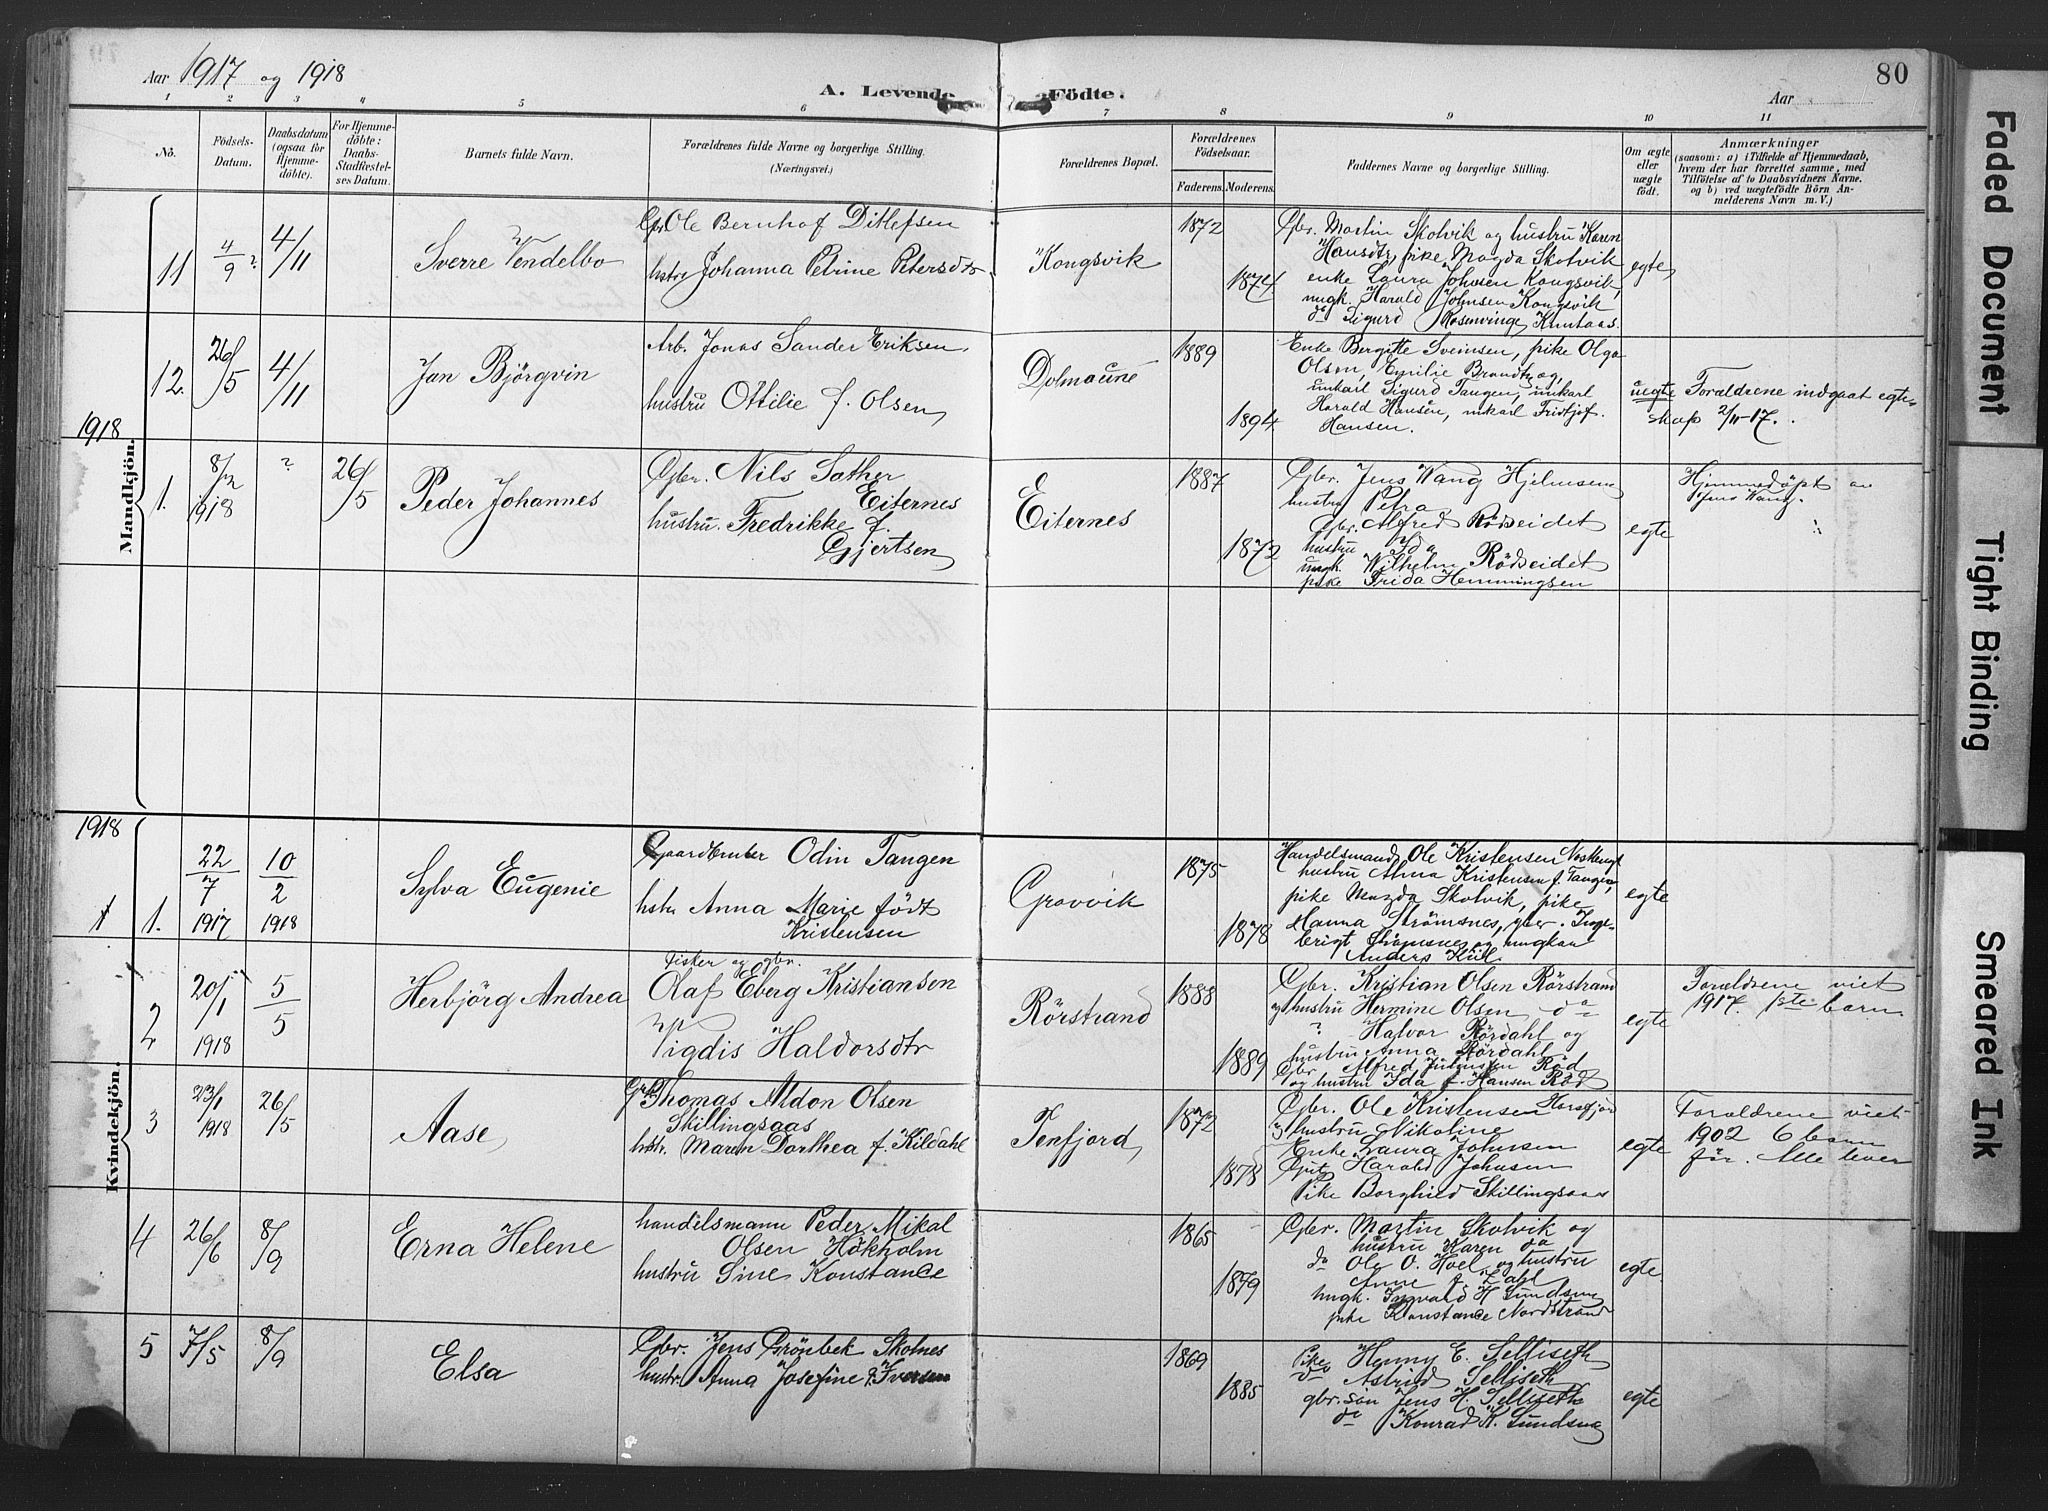 Aar 1917 og 1918
A. Levende Födte.
Aar
80
1 2 3 4 5 6 7 8 9 10 11
No.
Födsels-Datum.
Daabsdatum (ogsaa for Hjemmedöbte).
For Hjemmedöbte: Daabs-Stadfæstelses Datum.
Barnets fulde Navn.
Forældrenes fulde Navne og borgerlige Stilling.
(Næringsvei.)
Forældrenes Bopæl.
Forældrenes Födselsaar.
Faderens. Moderens.
Faddernes Navne og borgerlige Stilling.
Om ægte eller uægte födt.
Anmærkninger
(saasom: a) i Tilfælde af Hjemmedaab,
hvem der har forrettet samme, med
Tilföielse af to Daabsvidners Navne.
og b) ved uægtefödte Börn An-
melderens Navn m. V.)
Mandkjön.
11
4/9 ?
4/11
Sverre Vendelbo
Gbr. Ole Bernhof Ditlefsen
hstr Johanna Petrine Petersdtr
Kongsvik
1872
1874
Gbr. Martin Skolvik og hustru Karen
Hansdtr, pike Magda Skolvik
enke Laura Johnsen Kongsvik,
ungk. Harald Johnsen Kongsvik
do Sigurd Rosenvinge Knutaas.
egte
12.
26/5
4/11
Jan Björgvin
Arb. Jonas Sander Eriksen
hustru Ottilie f. Olsen
Dolmaune
1889
1894
Enke Bergitte Sveinsen, pike Olga
Olsen, Emilie Brandtz og
unkarl Sigurd Tangen, unkarl
Harald Hansen, unkarl Fristjof
Hansen.
uegte
Foraldrene indgaat egte-
skap 2/11-17.
1918
1.
8/12
1918
?
26/5
Peder Johannes
Gbr. Nils Sather
Eiternes
hustru. Fredrikke f.
Gjertsen
Eiternes
1887
1872
Gbr. Jens Wang Hjelmsen
hustru Petra
Gbr. Alfred Rödseidet
hustru Ida
ungk. Wilhelm Rödseidet
pike Frida Hemmingsen
egte
Hjemmedöpt av
Jens Wang.
1918
Kvindekjön.
1 1.
22/7
1917
10/2
1918
Sylva Eugenie
Gaardbruker Odin Tangen
hstr Anna Marie födt
Kristensen
Gravvik
1875
1878
Handelsmand Ole Kristensen
hustru Anna Kristensen f. Tangen,
pike Magda Skolvik, pike
Hanna Strömsnes, gbr. Inge-
brigt Strömsnes og ungkar
Anders Kiil
egte
2
20/1
1918
5/5
Herbjörg Andrea
Fisker og gbr.
Olaf Eberg Kristiansen
Vigdis Haldorsdtr
Rörstrand
1888
1889
Gbr. Kristian Olsen Rörstrand
og hustru Hermine Olsen do
? Halvor Rördahl og
hustru Anna Rördahl
Gbr Alfred Juliussen Röd
og hustru Ida f. Hansen Röd
egte
Foraldrene viet
1917. 1ste barn
3
23/1
1918
26/5
Aase
Gbr Thomas Aldon Olsen
Skillingsaas
hstr. Maren Dorthea f. Kildahl
Tenfjord
1872
1878
Gbr. Ole Kristensen Horsfjord
og hustru Nikoline
Enke Laura Johnsen
Gut Harald Johnsen
Pike Borghild Skillingsaas
egte
Foraldrene viet
1902 6 barn
för. Alle lever
4
26/6
8/9
Erna Helene
handelsmann Peder Mikal
Olsen Hökholm
hustru Sine Konstance
1865
1879
Gbr. Martin Skolvik og
hustru Karen do
do Ole O. Hoel og hustru
Anne f. Zahl
ungk. Ingvald H Sundsnes
pike Konstance Nordstrand
egte
5
7/5
8/9
Elsa
Gbr. Jens Grönbek Skolnes
hustr. Anna Josefine f. Iversen
1869
1885
Pike Henny E. Selliseth
do Astrid Selliseth
gbr. sön Jens H. Selliseth
do Konrad K. Sundsnes
egte
Faded Document
Tight Binding
Smeared Ink